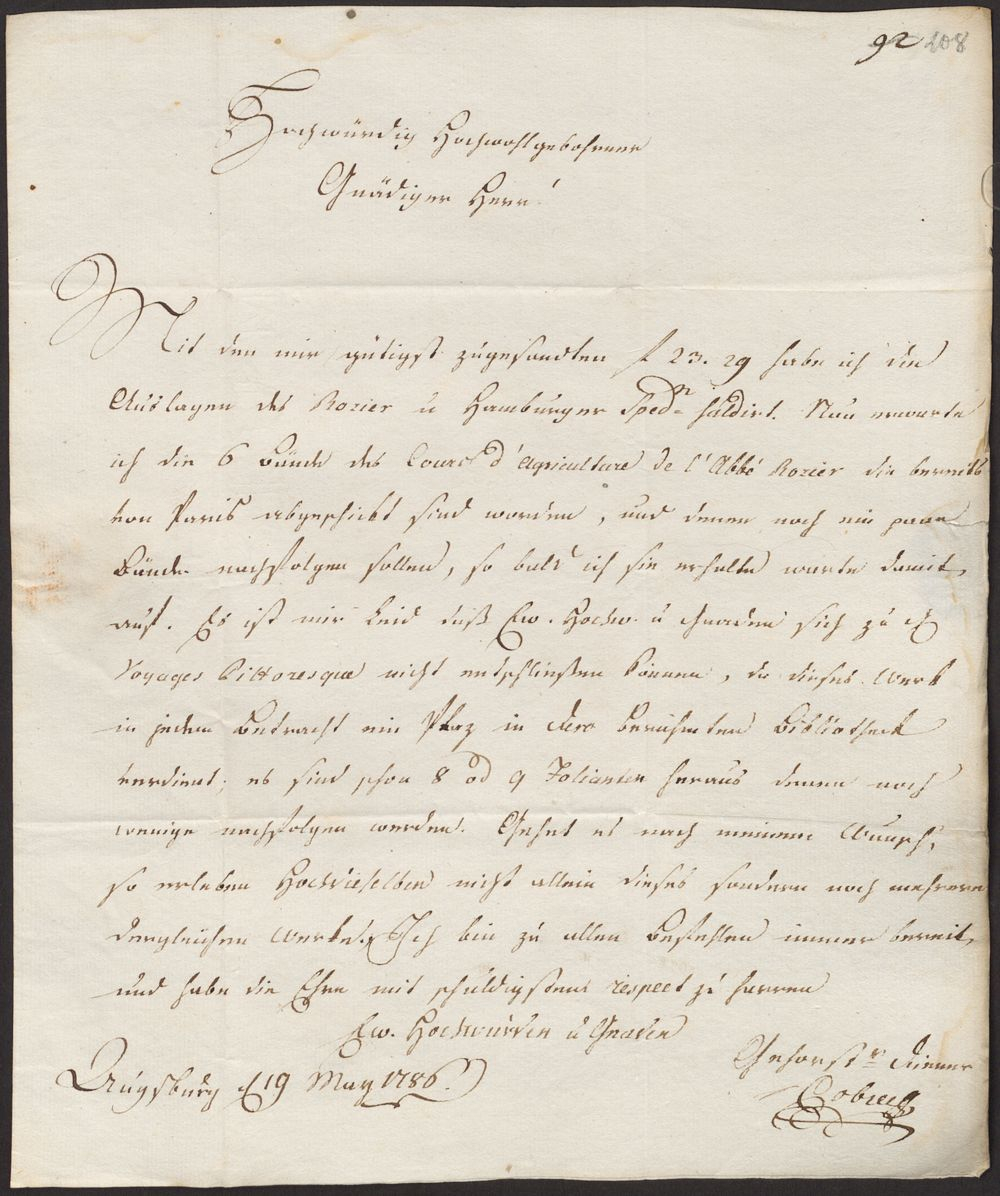 92 208
Hochwürdig Hochwohlgebohrner
Gnädiger Herr!
Mit den mir gütigst zugesandten f 23. 29 habe ich die
Auslagen des Rozier u Hamburger Spedn saldirt. Nun erwarte
ich die 6 Bände des Cours d'Agriculture de l'Abbé Rozier die bereits
von Paris abgeschickt sind worden, und denen noch ein paar
Bände nachfolgen sollen, so bald ich sie erhalte warte damit
auf. Es ist mir Leid daß Ew. Hochw. u Gnaden sich zu
Voyages Pittoresque nicht entschließen können, da dieses Werk
in jedem Betracht ein Plaz in dero berühmten Bibliotheck
verdient; es sind schon 8 od 9 Folianten heraus denen noch
wenige nachfolgen werden. Gehet es nach meinem Wunsch,
so erleben Hochdieselben nicht allein dieses sondern noch mehrere
dergleichen Werke. Ich bin zu allen Befehlen immer bereit,
und habe die Ehre mit schuldigstem respect zu harren
Ew. Hochwürden u Gnaden
Gehorsr Diener
Augsburg d 19 May 1786.